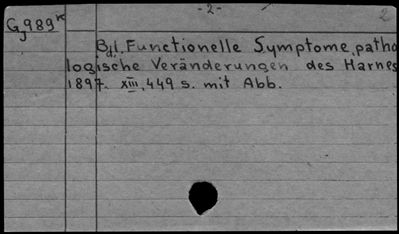 -2- 2
Gj989k
Bd1. Functionelle Symptome, patho
logische Veränderungen des Harnes
1897. XIII, 449 s. mit Abb.